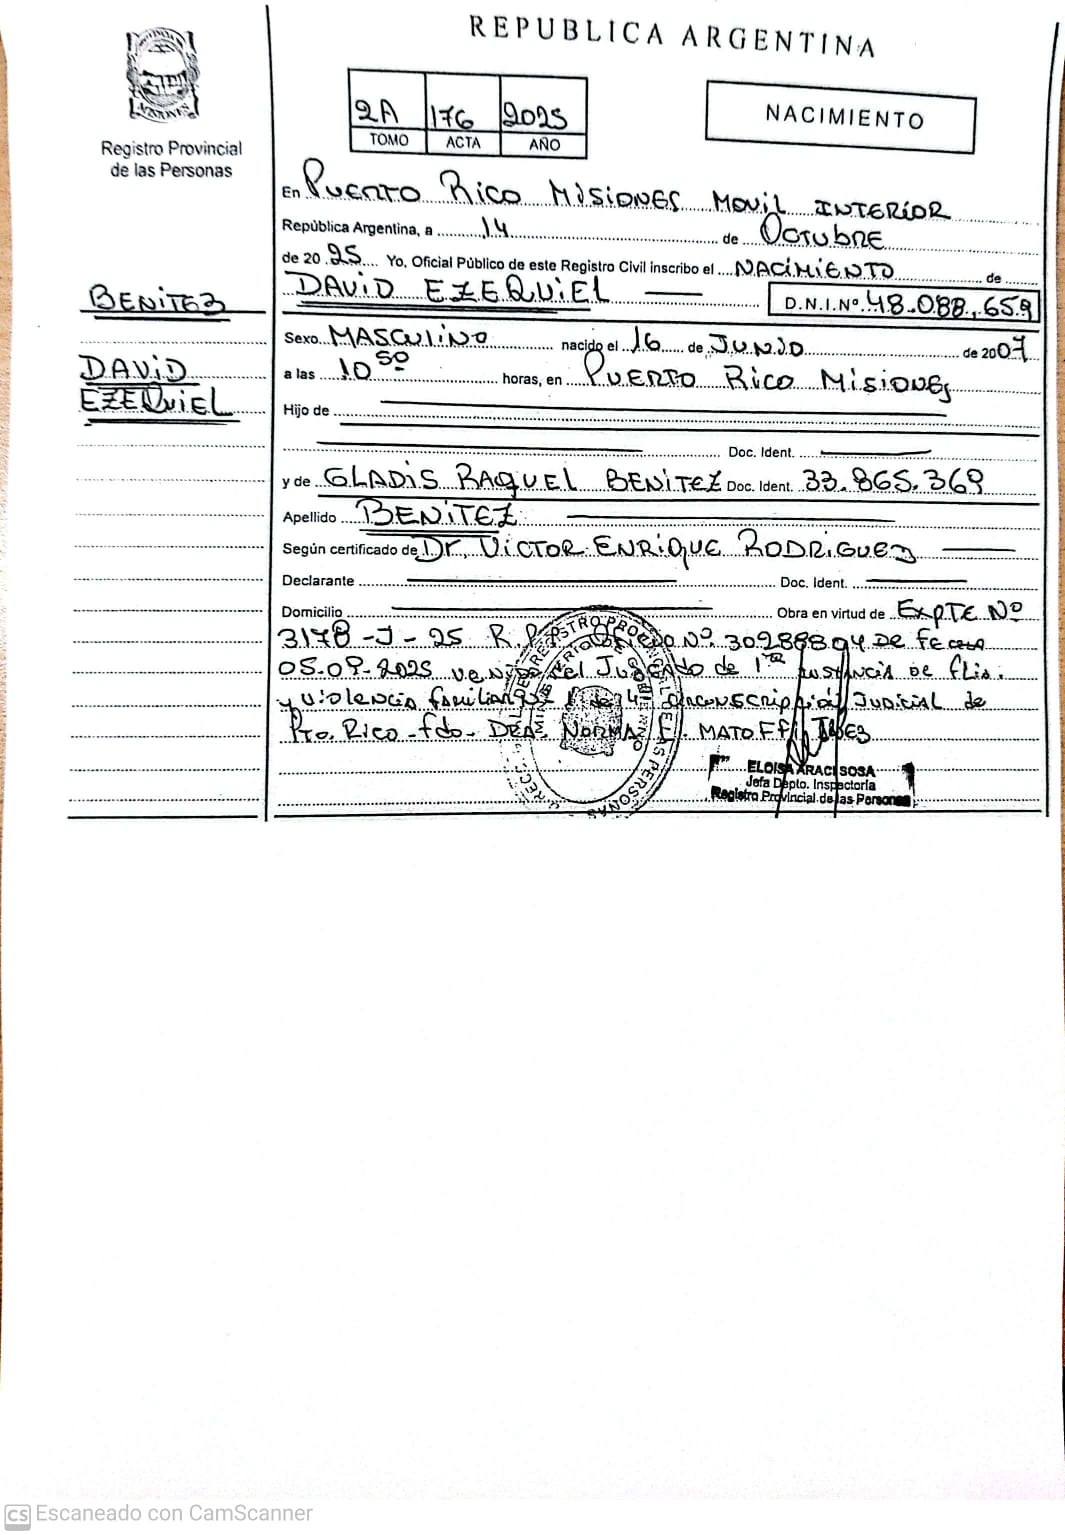 REPUBLICA ARGENTINA
Registro Provincial
de las Personas
2A 176 2025
TOMO ACTA AÑO
NACIMIENTO
En PUERTO RICO MISIONES MOVIL INTERIOR
República Argentina, a 14 de OCTUBRE
de 2025 Yo, Oficial Público de este Registro Civil inscribo el NACIMIENTO de
DAVID EZEQUIEL D.N.I.Nº 48.088.659
BENITEZ
Sexo MASCULINO nacido el 16 de JUNIO de 2007
DAVID
EZEQUIEL
a las 10 50 horas, en PUERTO RICO MISIONES
Hijo de
Doc. Ident.
y de GLADIS RAQUEL BENITEZ Doc. Ident. 33.865.369
Apellido BENITEZ
Según certificado de Dr. VICTOR ENRIQUE RODRIGUEZ
Declarante Doc. Ident.
Domicilio Obra en virtud de EXPTE Nº
3178-J-25 R. Nº 30288804 DE FECHA
05-09-2025 del Juzgado de 1ra INSTANCIA DE flia.
y violencia familiar de 4 circunscripción JUDICIAL de
Pto. Rico - fdo - DRA. NORMA E. MATOFF
ELOISA ARACI SOSA
Jefa Depto. Inspectoría
Registro Provincial de las Personas
CS Escaneado con CamScanner